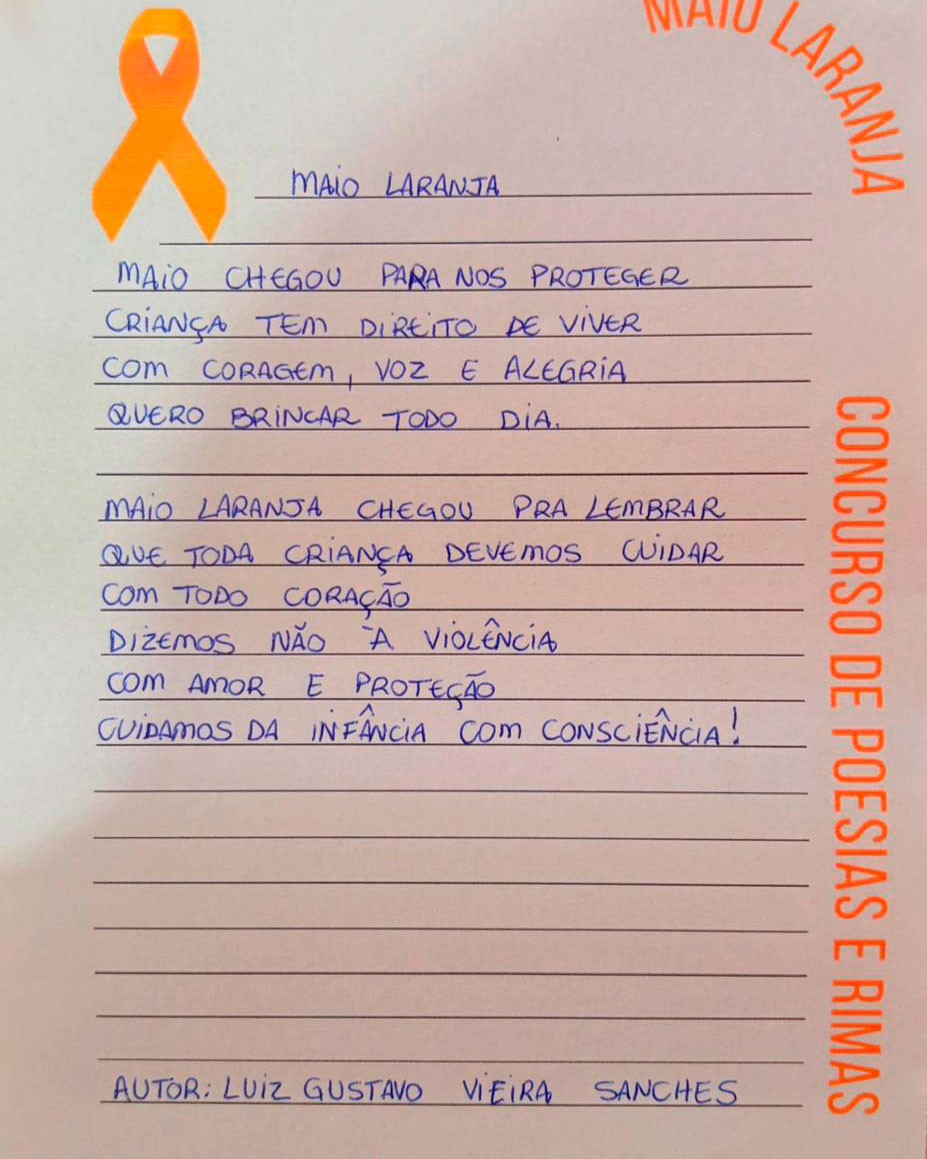 MAIO LARANJA
MAIO LARANJA
MAIO CHEGOU PARA NOS PROTEGER
CRIANÇA TEM DIREITO DE VIVER
COM CORAGEM, VOZ E ALEGRIA
QUERO BRINCAR TODO DIA.
MAIO LARANJA CHEGOU PRA LEMBRAR
QUE TODA CRIANÇA DEVEMOS CUIDAR
COM TODO CORAÇÃO
DIZEMOS NÃO À VIOLÊNCIA
COM AMOR E PROTEÇÃO
CUIDAMOS DA INFÂNCIA COM CONSCIÊNCIA!
AUTOR: LUIZ GUSTAVO VIEIRA SANCHES
CONCURSO DE POESIAS E RIMAS